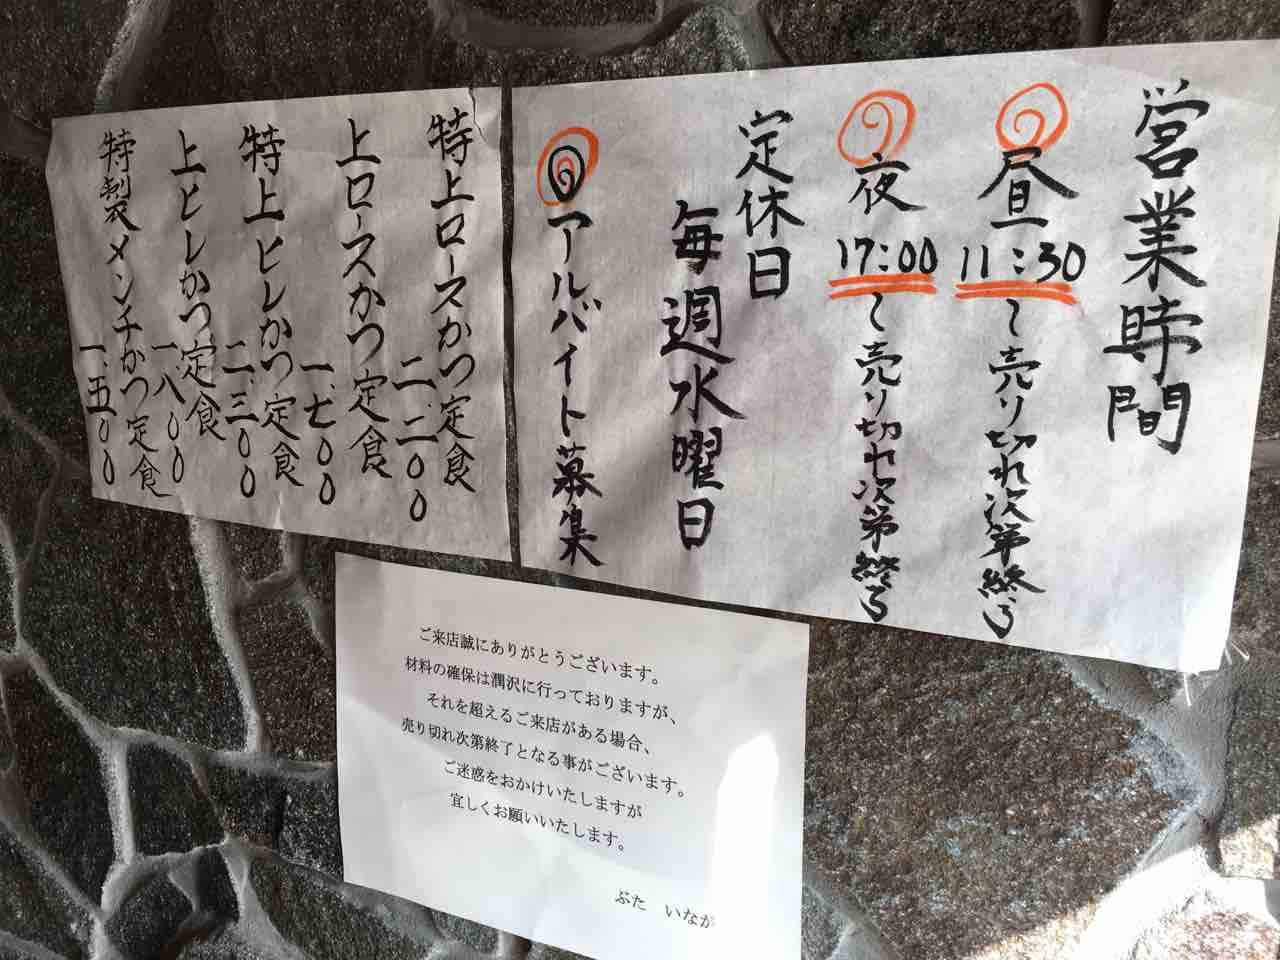 営業時間
昼 11:30〜売り切れ次第終る
夜 17:00〜売り切れ次第終る
定休日
毎週水曜日
アルバイト募集
特上ロースかつ定食
二、二〇〇
上ロースかつ定食
一、七〇〇
特上ヒレかつ定食
二、三〇〇
上ヒレかつ定食
一、八〇〇
特製メンチかつ定食
一、五〇〇
ご来店誠にありがとうございます。
材料の確保は潤沢に行っておりますが、
それを超えるご来店がある場合、
売り切れ次第終了となる事がございます。
ご迷惑をおかけいたしますが
宜しくお願いいたします。
ぶた いなか